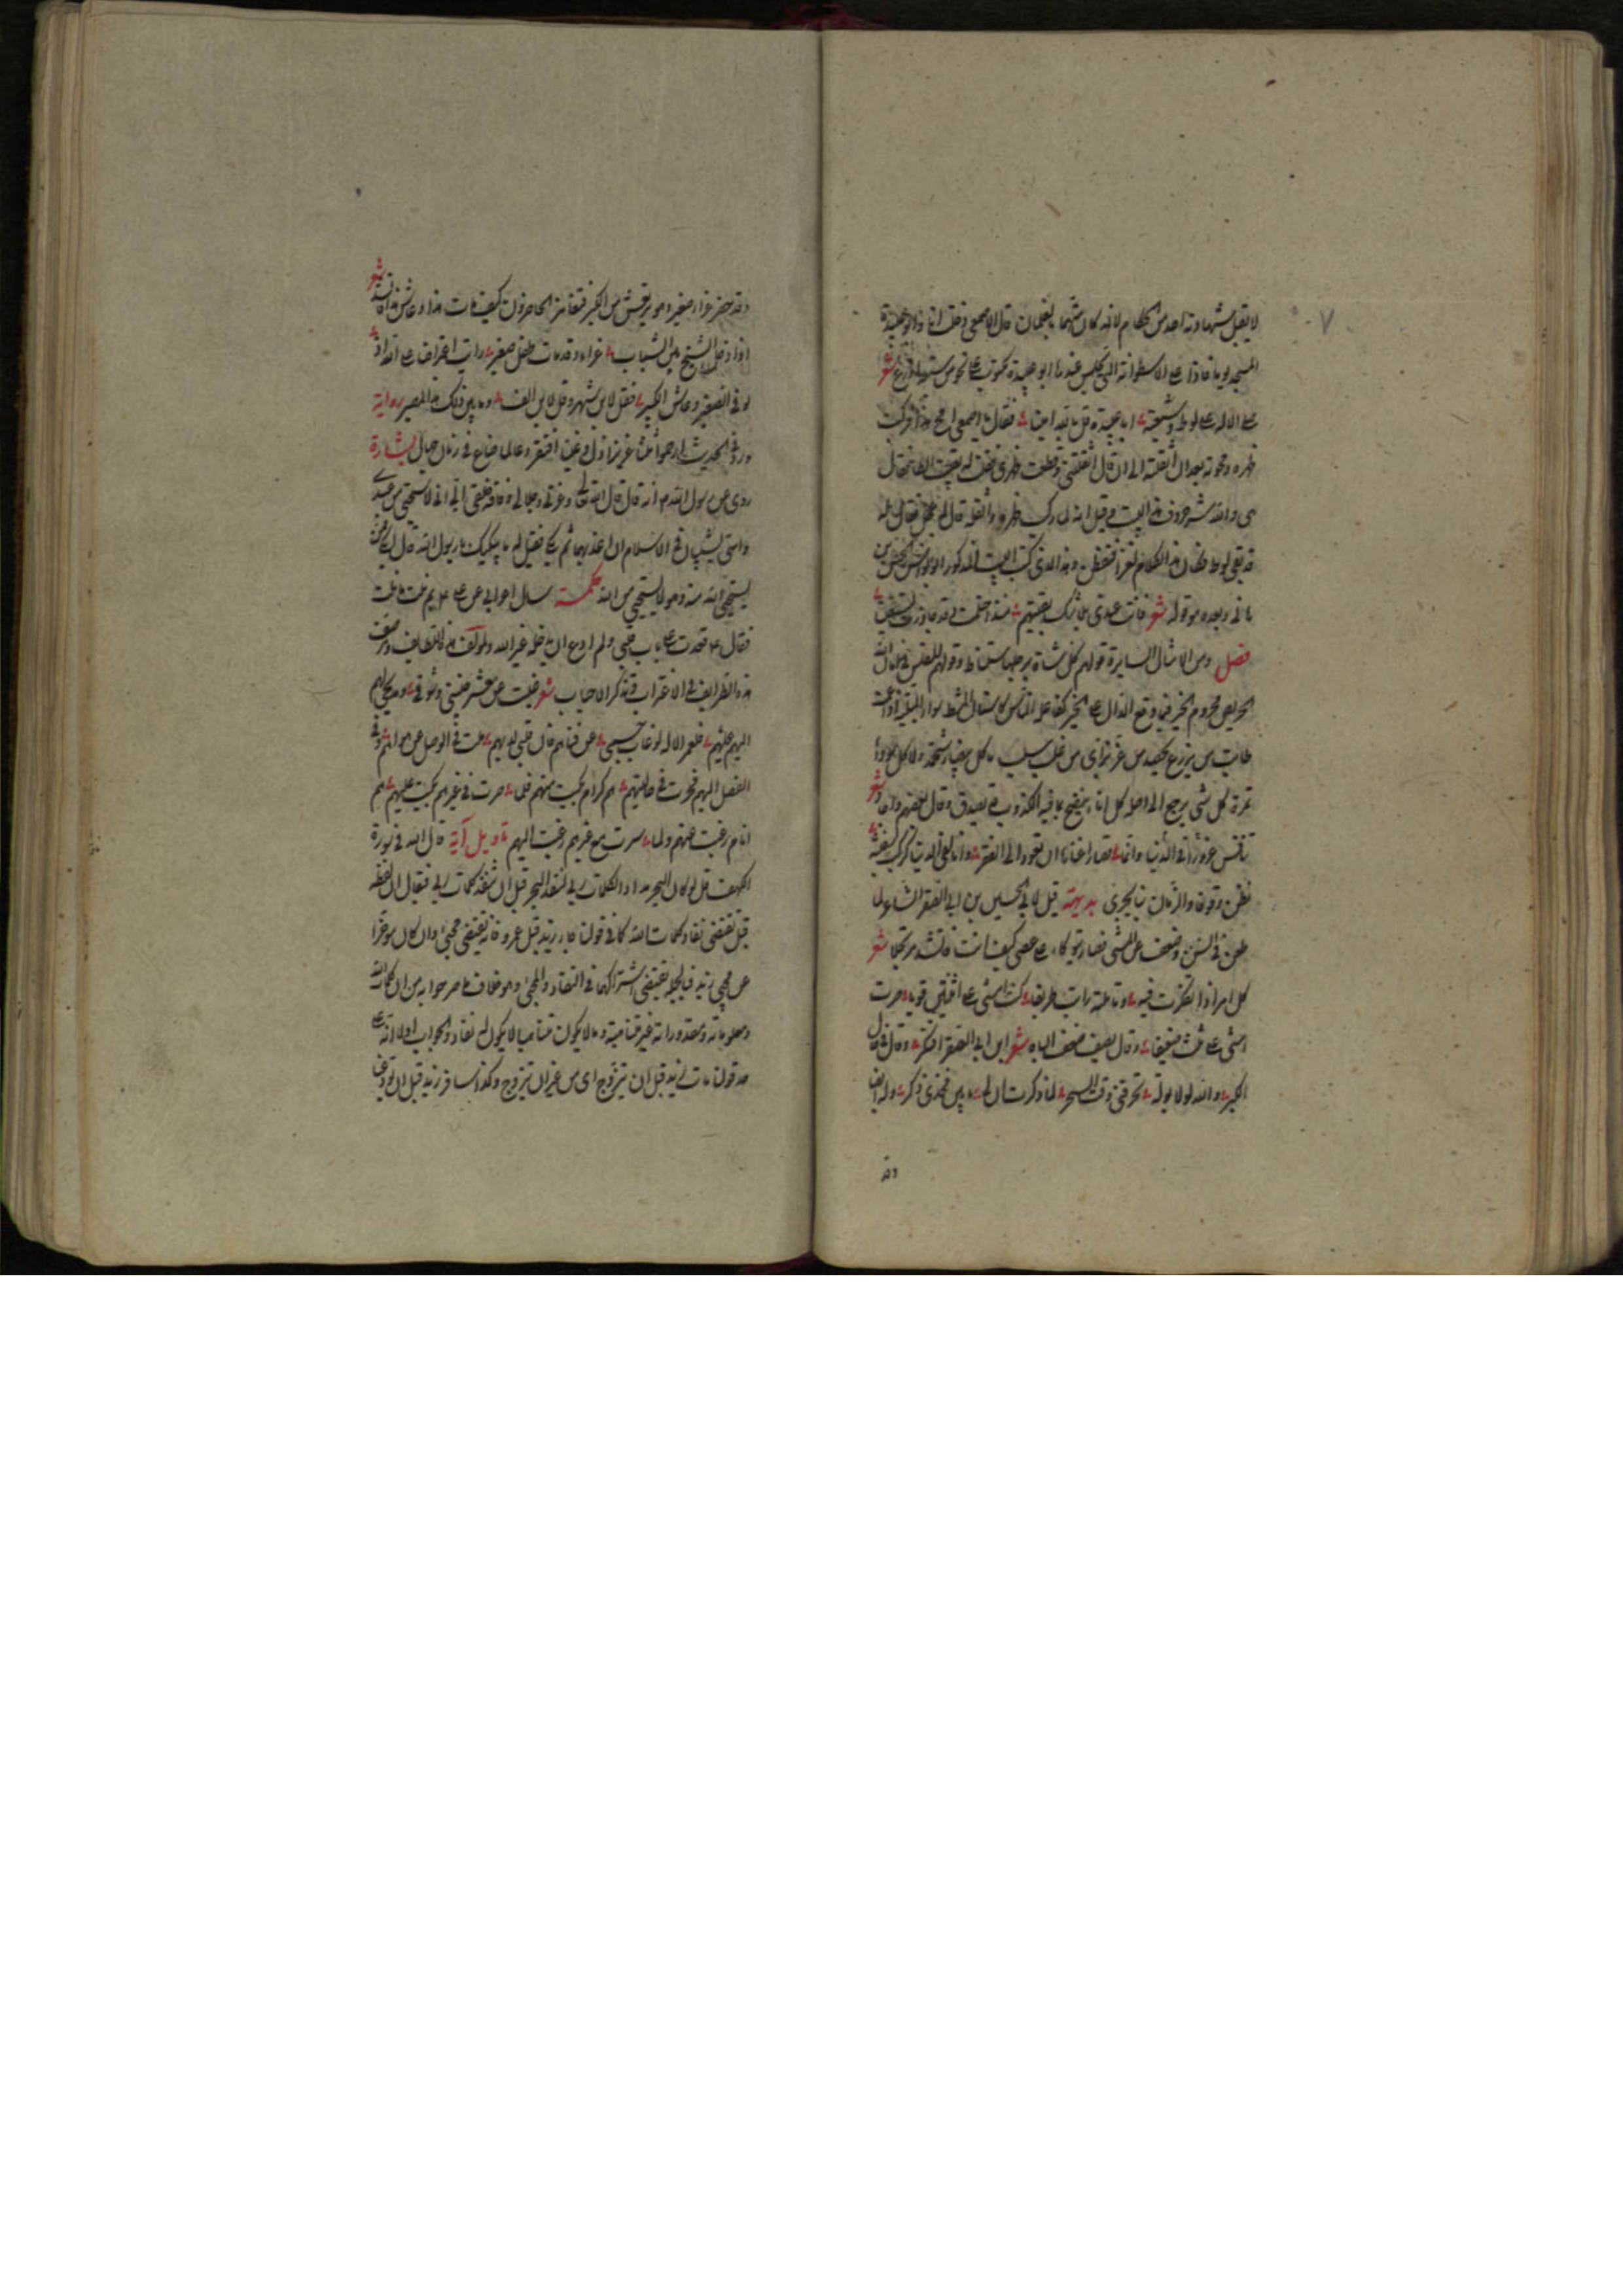 لا يقبل شهادته احد من الحكام لانه كان متهما بالغلمان قال الاصمعي دخلت انا وابو عبيدة
المسجد يوما فاذا على الاسطوانة التي يجلس عندها ابو عبيدة مكتوب على نحو من سبعة اذرع شعر
صلى الاله على لوط وشيعته ابا عبيدة قل بالله امينا فقال يا اصمعي امح هذا فركبت
ظهره ومحوته بعد ان اثقلته الى ان قال اثقلتني وقطعت ظهري فقلت له بقيت الطا فقال
هي والله شر حروف هذا البيت وقيل انه لما ركب ظهره واثقله قال له عجل فقال له
قد بقي لوط فقال من الكلام نفر فعطل وهذا الذي كتب البيت المذكور ابو نواس الحسن بن
هاني وبعده هو قوله شعر فانت عندي بلا شك بقيتهم منذ احتلمت وقد جاوزت تسعينا
فصل ومن الامثال السايرة قولهم كل شاة برجلها ستناط وقولهم المفلس في امان الله
الحريص محروم الخير فيما وقع الدال على الخير كفاعله الناس كاسنان المشط
من يزرع يحصد من عز بز اي من غلب سلب ما كل بيضا شحمة ولا كل سودا
تمرة كل شي يرجع الى اصله كل اناء ينضح بما فيه الكذوب قد يصدق وقال بعضهم شعر
تنافس في الدنيا غرورا وانما قصارى غنانا ان نعود الى الفقر وانا لفي الدنيا كركب سفينة
نظن وقوفا والزمان بنا يجري بديهته قيل لابي الحسين بن ابي الصقر الشاعر لما
طعن في السن وضعف عن المشي فصار يتوكا على عصى كيف انت فانشد مرتجلا شعر
كل امر اذا تفكرت فيه وتاملته رايت طريفا كنت امشي على اثنتين قويا صرت
امشي على ثلث ضعيفا وقال يصف ضعف الباه شعر ابن ابي الصقر افتكر وقال في حال
الكبر والله لولا بولة تحرقني وقت السحر لما ذكرت ان لي ما بين فخذي ذكر وله ايضا
وقد
وقد حضر عزاء صغير وهو يرتعش من الكبر فتغامز الحاضرون كيف مات هذا وعاش هذا فانشد شعر
اذا دخل الشيخ بين الشباب عزاء وقد مات طفل صغير رايت اعتراضا على الله اذ
توفي الصغير وعاش الكبير فقل لابن شهر وقل لابن الف وما بين ذلك هذا المصير رواية
ورد في الحديث ارحموا ثلثا عزيزا ذل وغنيا افتقر وعالما ضاع في زمان جهال بشارة
روي عن رسول الله ص انه قال قال الله تعالى وعزتي وجلالي وفاقة خلقي الي اني لاستحي من عبدي
وامتي يشيبان في الاسلام ان اعذبهما ثم بكى فقيل له ما يبكيك يا رسول الله قال ابكي ممن
يستحي الله منه وهو لا يستحي من الله حكمة سال اعرابي عن علي ع بم نلت ما نلت
فقال ع قعدت على باب قلبي ولم ادع ان يدخله غير الله ولمؤلف هذه اللطايف وصف
هذه الظرايف في الاغتراب وتذكر الاحباب شعر غبت عن معشر ضنيتي وشوقي
اليهم عليهم فلعمر الاله لو غاب جسمي عن فناهم فان قلبي لديهم ملت في الوصل عن هواهم وفي
الفصل اليهم فحرت في حالتيهم هم كرام عجبت منهم فلما صرت في غيرهم عجبت عليهم هم
اناس رغبت عنهم ولما سرت مع غيرهم رغبت اليهم تاويل آية قال الله في سورة
الكهف قل لو كان البحر مدادا لكلمات ربي لنفد البحر قبل ان تنفد كلمات ربي فيقال ان لفظة
قبل تقتضي نفاد كلمات الله كما في قولنا جاء زيد قبل عمرو فانه يقتضي مجي وان كان موخرا
عن مجي زيد فبالجملة يقتضي اشتراكهما في النفاد والمجي وهو خلاف ما صرحوا به من ان كلمات الله
ومعلوماته ومقدوراته غير متناهية وما لا يكون متناهيا لا يكون له نفاد والجواب اولا انه على
حد قولنا مات زيد قبل ان يتزوج اي من غير ان يتزوج وكذا سافر زيد قبل ان